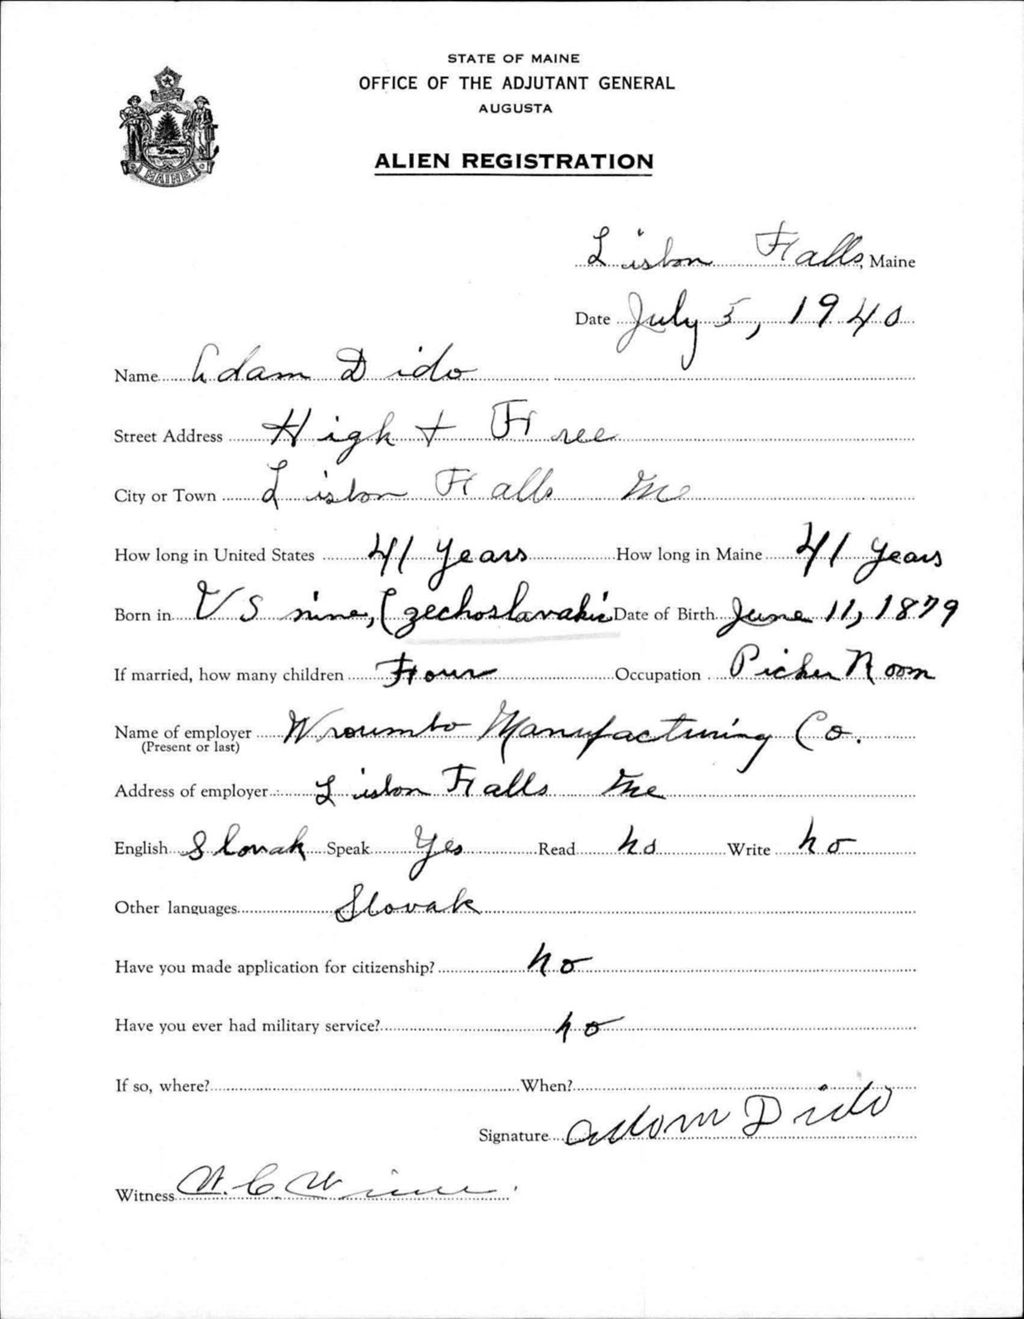 STATE OF MAINE
OFFICE OF THE ADJUTANT GENERAL
AUGUSTA
ALIEN REGISTRATION
MAINE
Lisbon Falls, Maine
Date July 5, 1940
Name Adam Dido
Street Address High + Free
City or Town Lisbon Falls Me
How long in United States 41 years How long in Maine 41 years
Born in Czechoslavakia Date of Birth June 11, 1879
If married, how many children Four Occupation Picker Room
Name of employer Wroumbo Manufacturing Co.
(Present or last)
Address of employer Lisbon Falls Me
English Slovak Speak Yes Read no Write no
Other languages Slovak
Have you made application for citizenship? no
Have you ever had military service? no
If so, where? When?
Signature Adom Dido
Witness